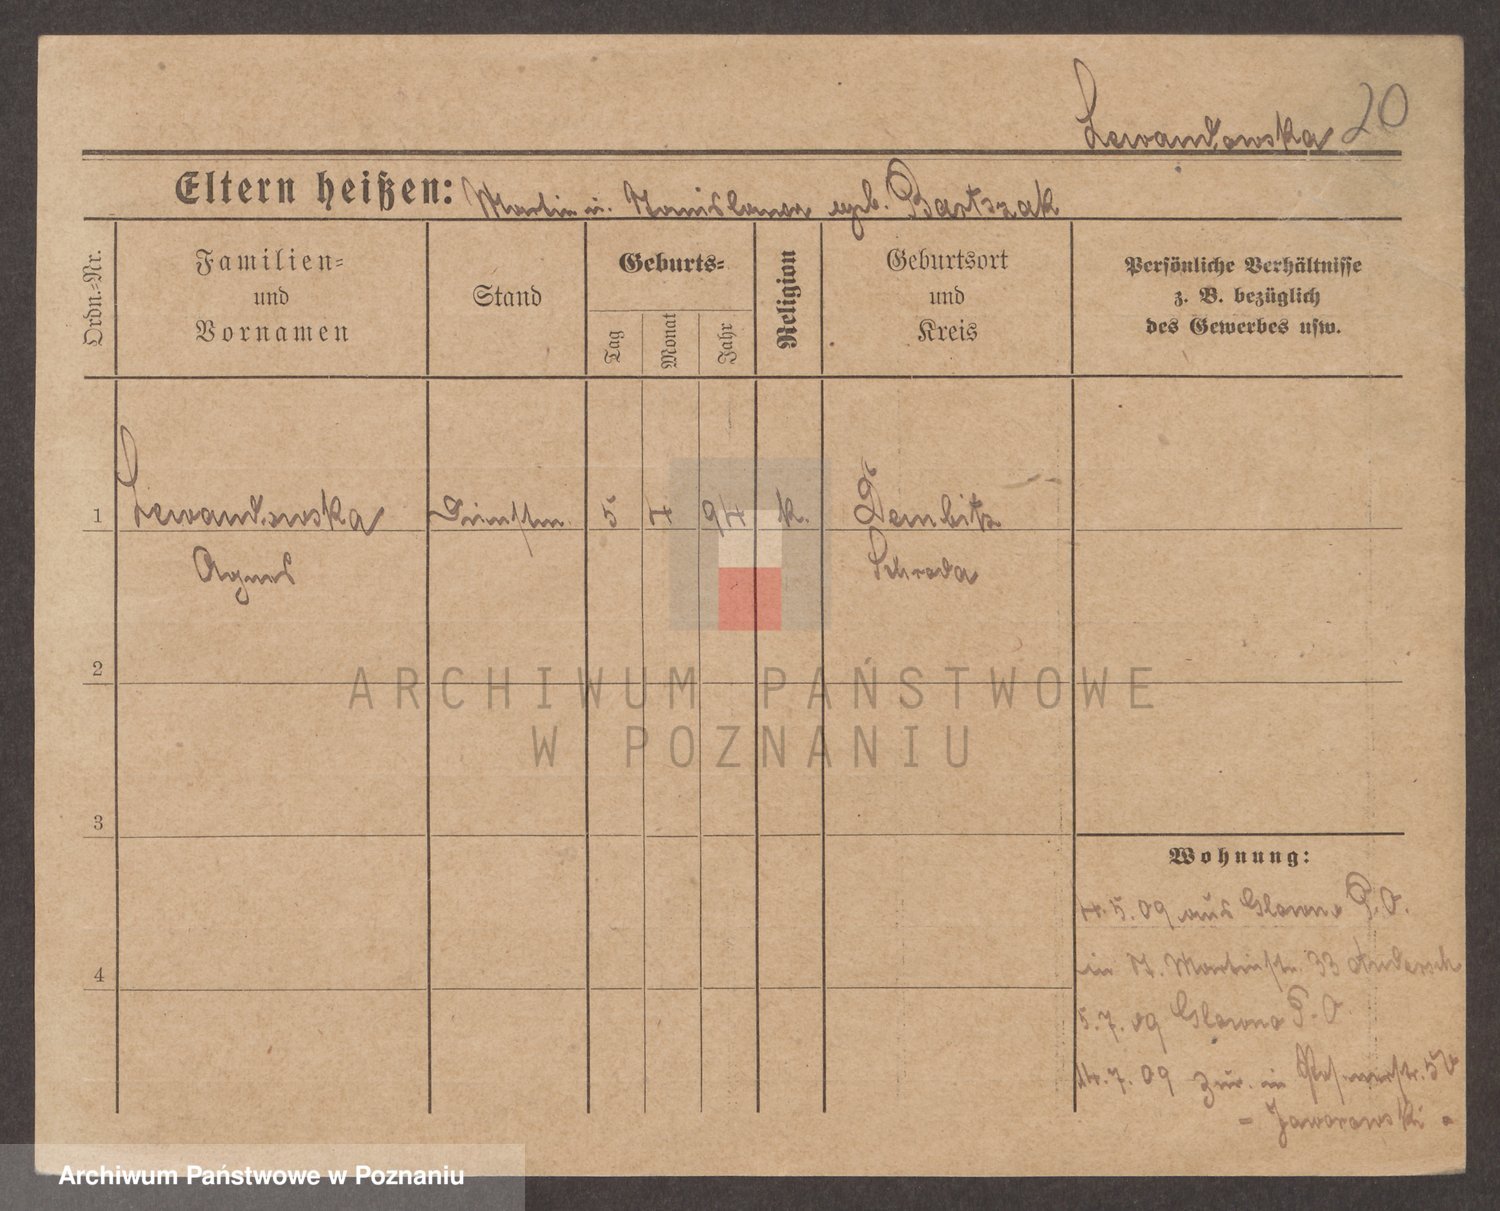 Lewandowska 20
Eltern heißen: Martin u. Stanislawa geb. Bartszak
Ordn.-Nr.
Familien-
und
Vornamen
Stand
Geburts-
Tag
Monat
Jahr
Religion
Geburtsort
und
Kreis
Persönliche Verhältnisse
z. B. bezüglich
des Gewerbes usw.
1 Lewandowska Dienstm. 5 4 94 k. Dembitz
Agnes Schroda
2
ARCHIWUM PAŃSTWOWE
W POZNANIU
3
Wohnung:
4.5.09 aus Glowno P.O.
in St. Martinstr. 33 Andersch
4
5.7.09 Glowno P.O.
14.7.09 zur. in Posenerstr. 50
- Jaworowski -
Archiwum Państwowe w Poznaniu